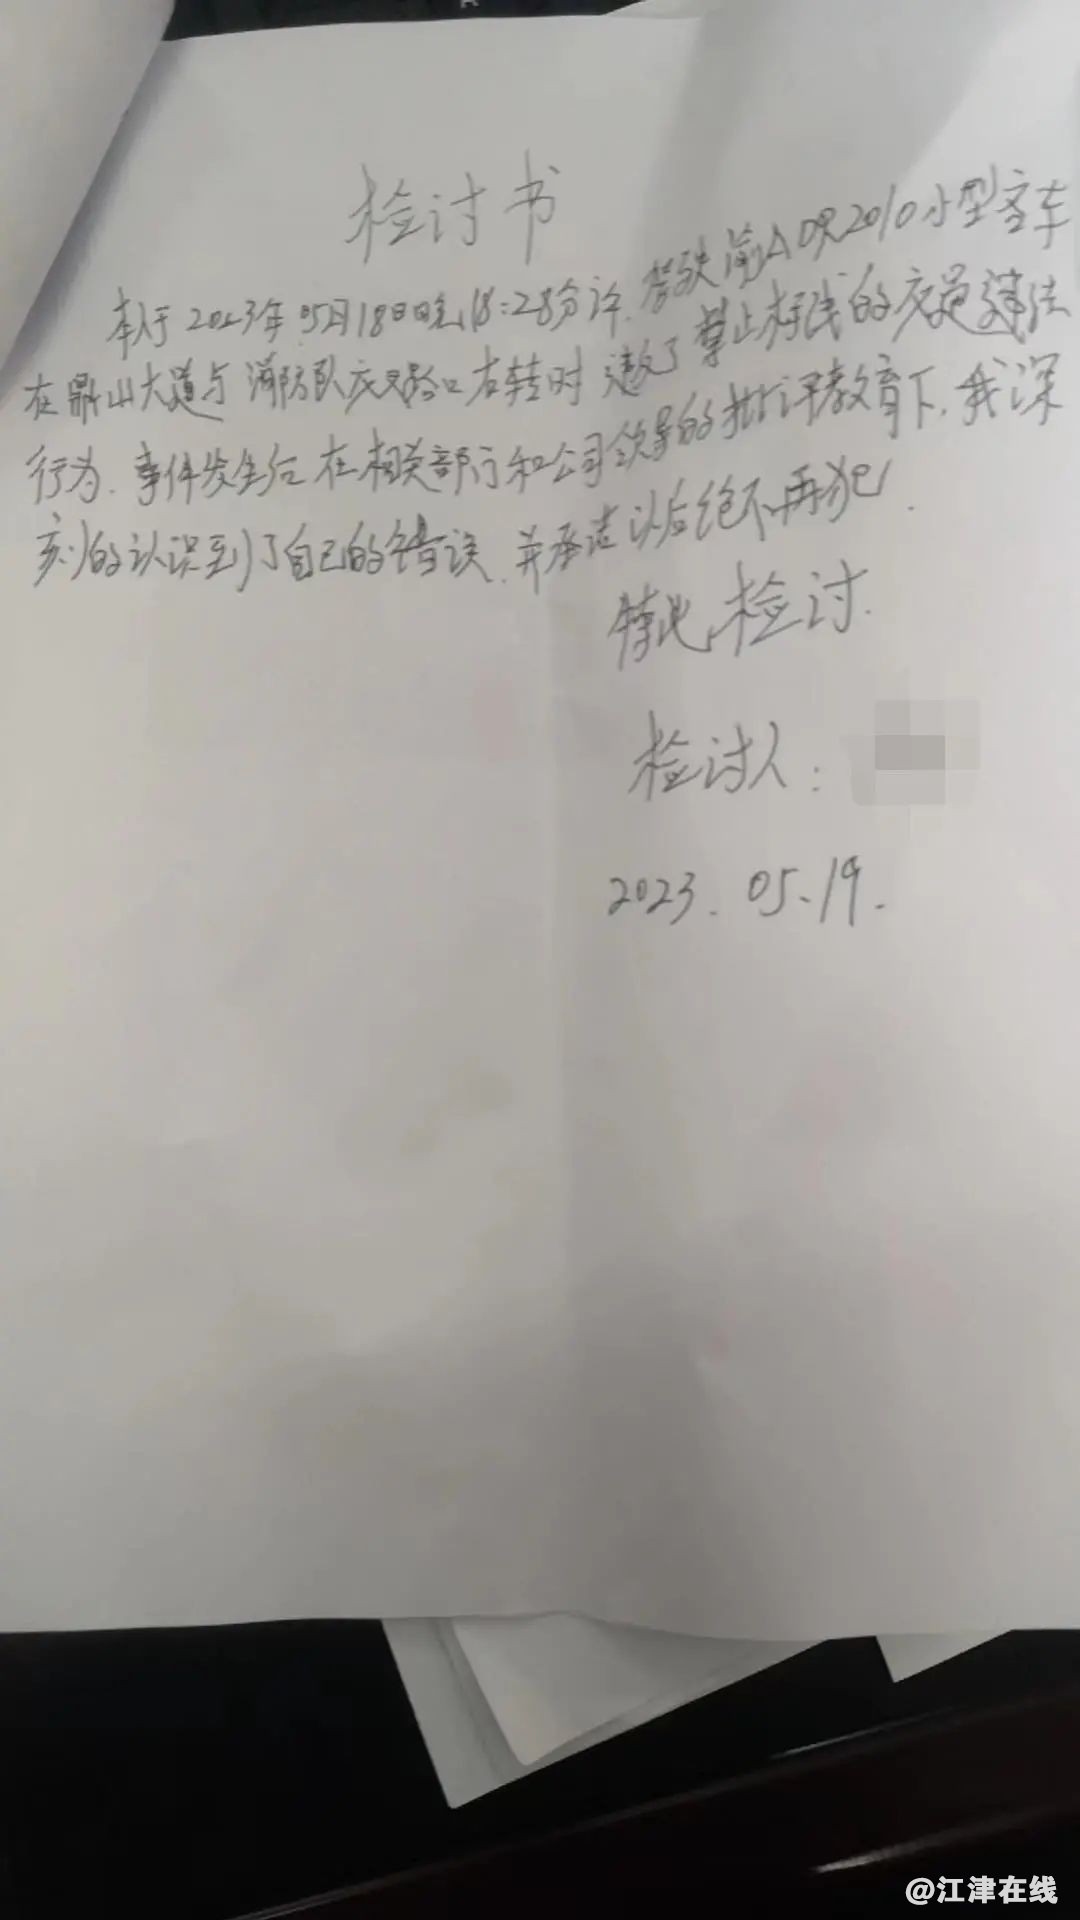 检讨书
本人于2023年05月18日晚18:28分许.驾驶渝A0R2010小型客车
在鼎山大道与消防队交叉路口右转时违反了禁止标线的交通违法
行为.事件发生后在相关部门和公司领导的批评教育下.我深
刻的认识到了自己的错误.并承诺以后绝不再犯.
特此检讨.
检讨人:
2023.05.19.
@江津在线